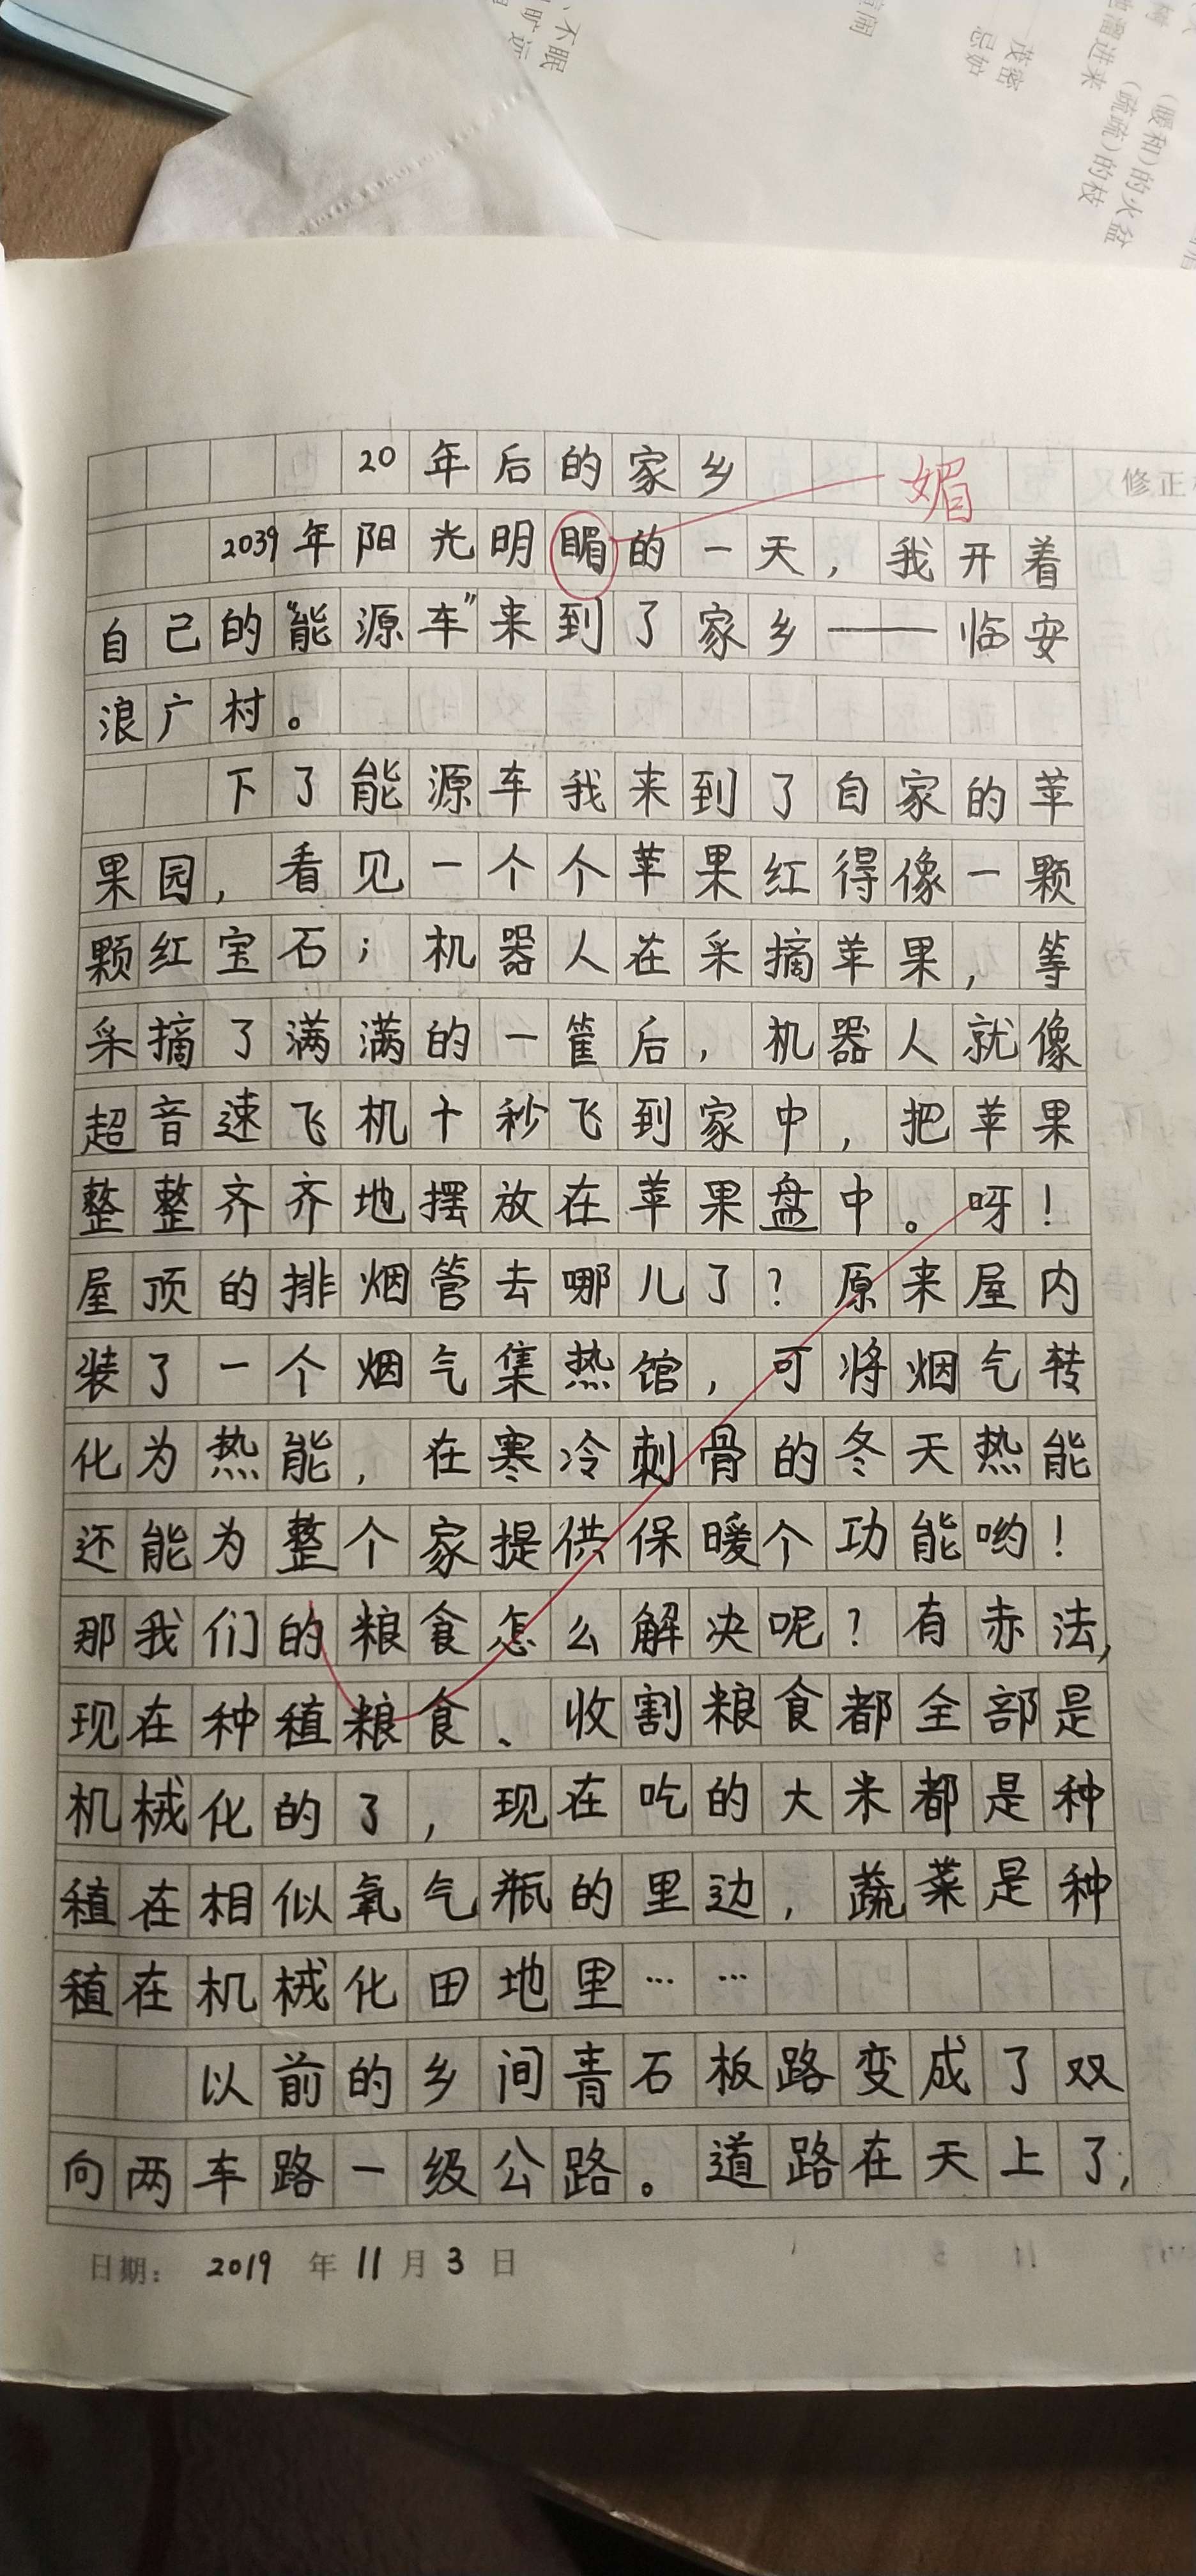 不眠
旷远
茂密
忌妒
进来
(暖和)的火盆
(疏疏)的枝
20年后的家乡
媚
修正
2039年阳光明媚的一天，我开着
自己的“能源车”来到了家乡——临安
浪广村。
下了能源车我来到了自家的苹
果园，看见一个个苹果红得像一颗
颗红宝石；机器人在采摘苹果，等
采摘了满满的一筐后，机器人就像
超音速飞机十秒飞到家中，把苹果
整整齐齐地摆放在苹果盘中。呀！
屋顶的排烟管去哪儿了？原来屋内
装了一个烟气集热馆，可将烟气转
化为热能，在寒冷刺骨的冬天热能
还能为整个家提供保暖个功能哟！
那我们的粮食怎么解决呢？有赤法，
现在种植粮食、收割粮食都全部是
机械化的了，现在吃的大米都是种
植在相似氧气瓶的里边，蔬菜是种
植在机械化田地里……
以前的乡间青石板路变成了双
向两车路一级公路。道路在天上了；
日期：2019年11月3日